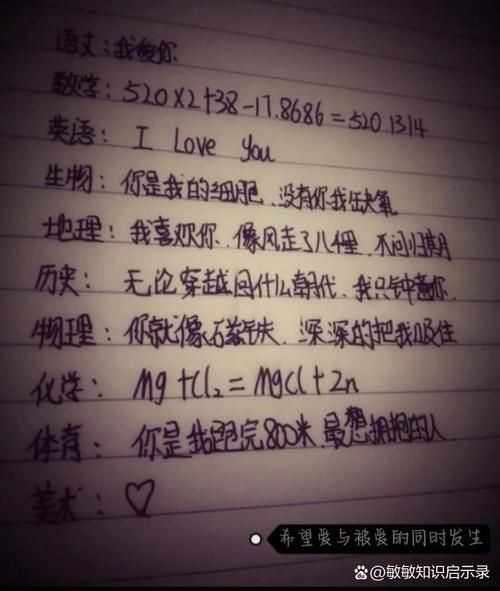 语文：我爱你
数学：520×2+38-17.8686=520.1314
英语：I Love You
生物：你是我的细胞、没有你我会缺氧
地理：我喜欢你、像风走了八千里、不问归期
历史：无论穿越回什么朝代、我只钟意你、
物理：你就像石兹铁、深深的把我吸住
化学：Mg+Cl₂=MgCl+Zn
体育：你是我跑完800米、最想拥抱的人、
美术：♡
希望爱与被爱的同时发生
敏敏知识启示录